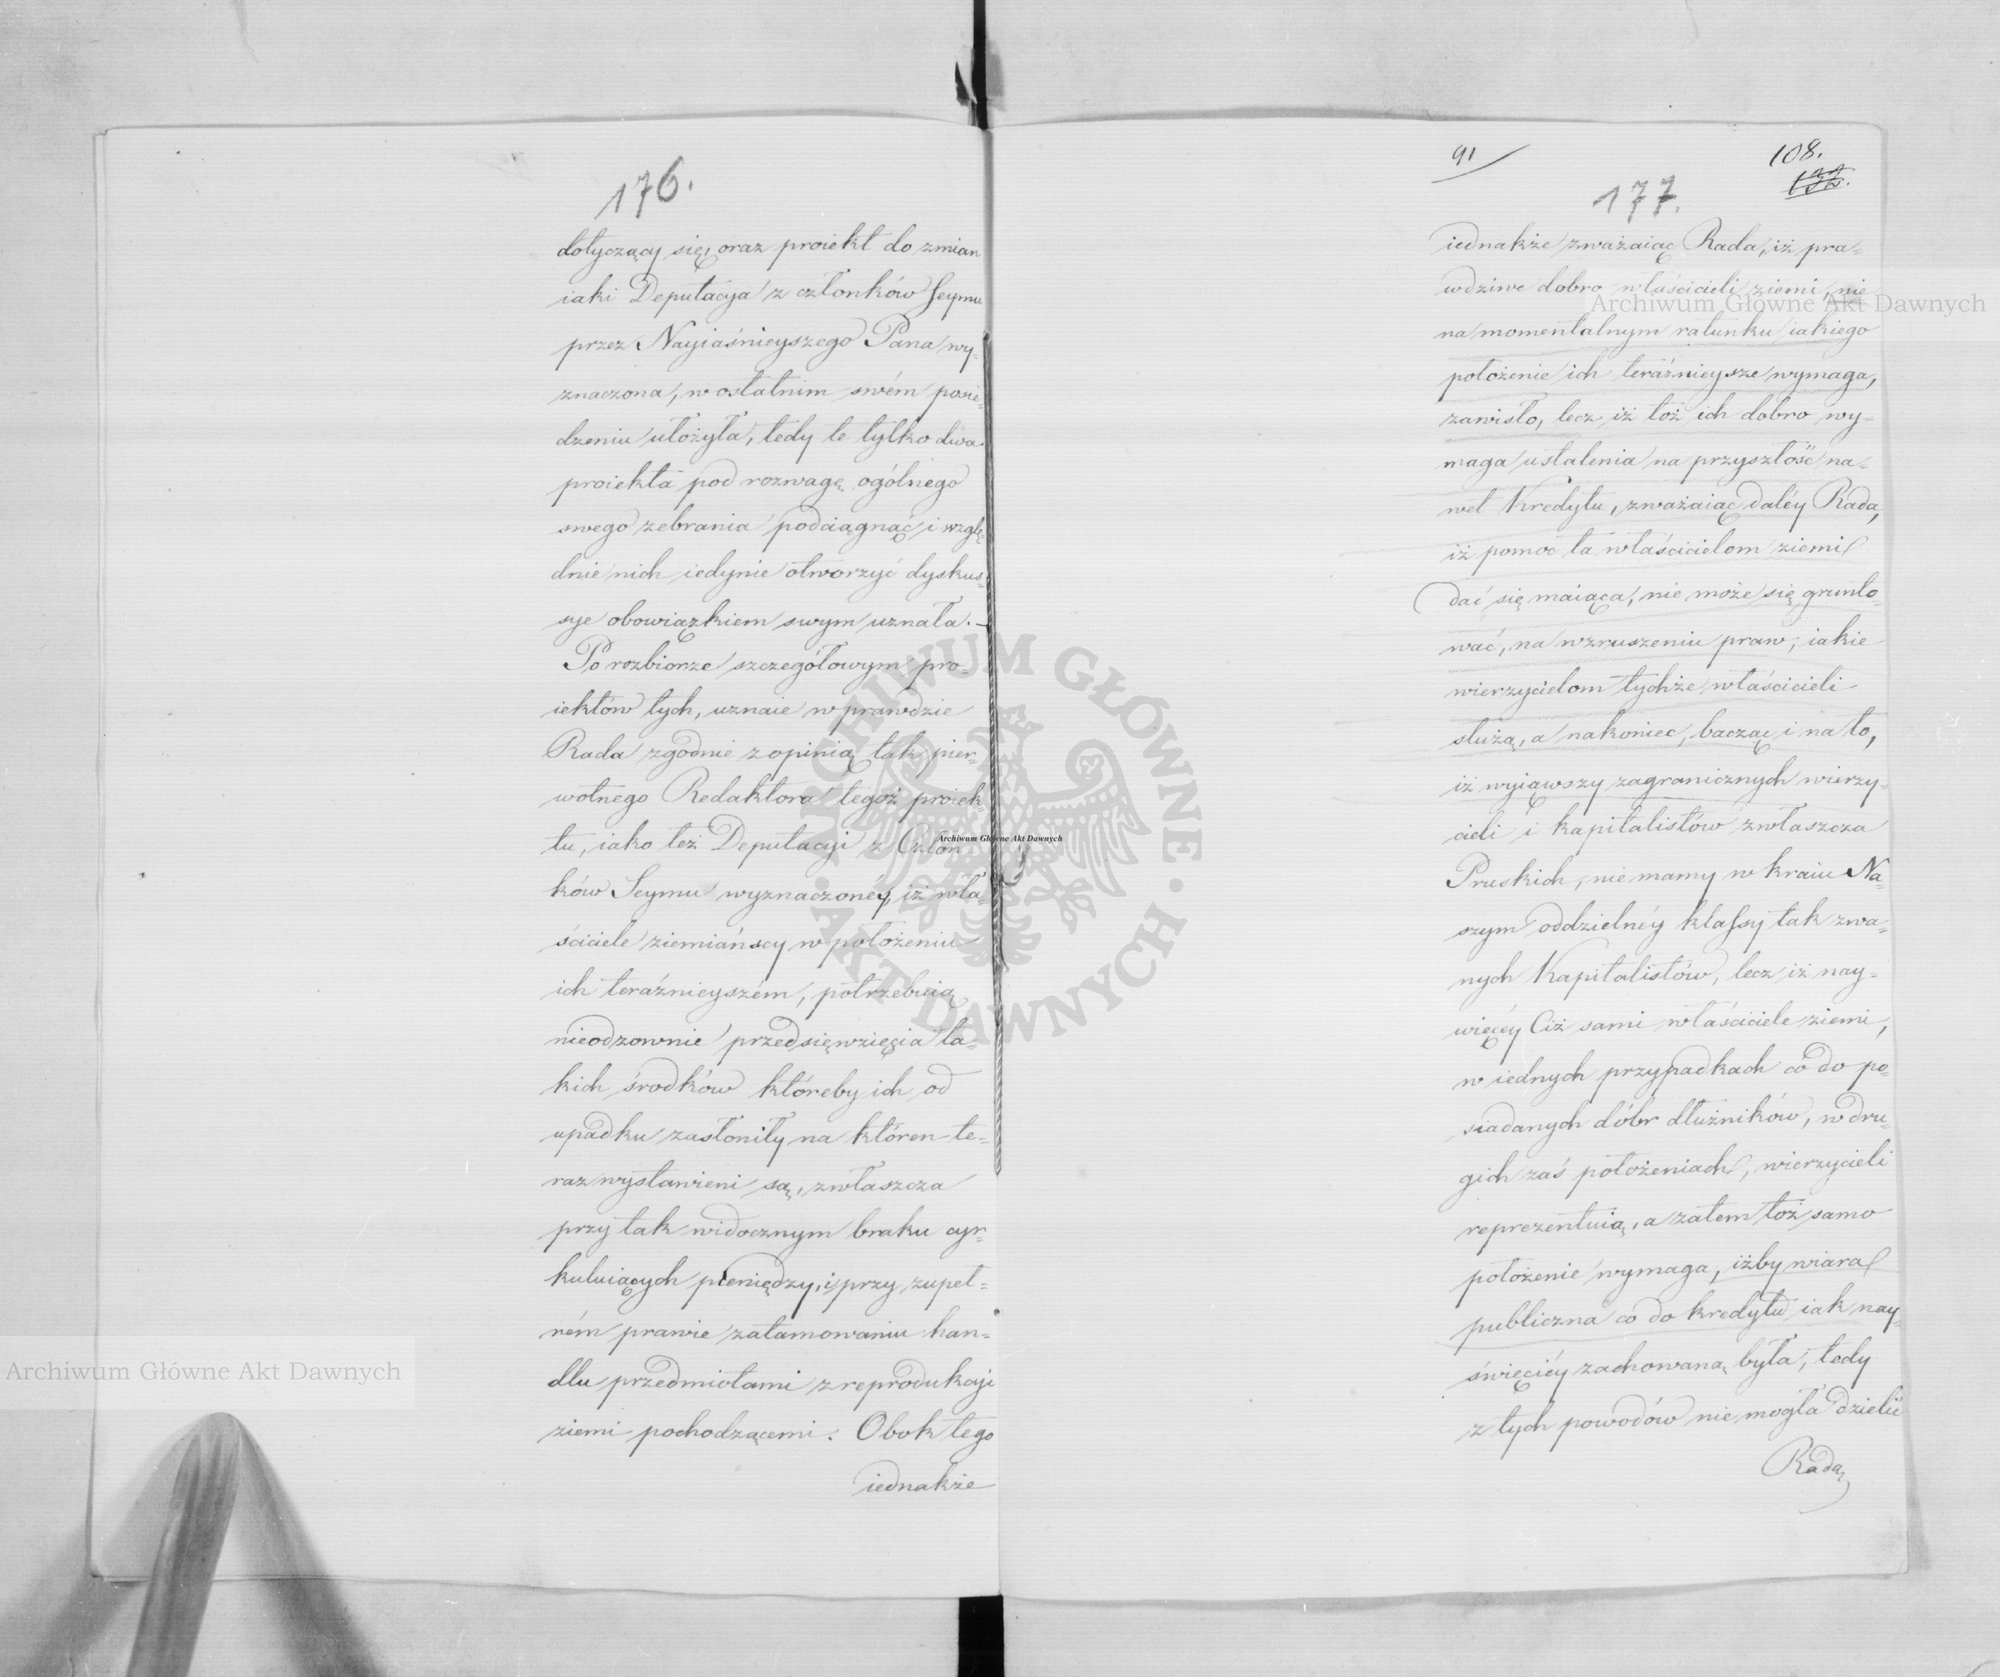 176.
dotyczący się, oraz proiekt do zmian
iaki Deputacya z członków Seymu
przez Nayiaśnieyszego Pana wy-
znaczona, w ostatnim swém posie-
dzeniu ułożyła, tedy te tylko dwa
proiekta pod rozwagę ogólnego
swego zebrania podciągnąć i wzglę-
dnie nich iedynie otworzyć dyskus-
sye obowiązkiem swym uznała. -
Po rozbiorze szczegółowym pro-
iektów tych, uznaie wprawdzie
Rada zgodnie z opinią tak pier-
wotnego Redaktora tegoż proiek-
tu, iako też Deputacyi z Człon-
ków Seymu wyznaczonéy, iż wła-
ściciele ziemiańscy w położeniu
ich teraźnieyszém, potrzebuią
nieodzownie przedsięwzięcia ta-
kich środków któreby ich od
upadku zasłoniły na któren te-
raz wystawieni są, zwłaszcza
przy tak widocznym braku cyr-
kuluiących pieniędzy, i przy zupeł-
ném prawie zatamowaniu han-
dlu przedmiotami z reprodukcyi
ziemi pochodzącemi. Obok tego
iednakże
91
108.
177.
iednakże zważaiąc Rada, iż pra-
wdziwe dobro właścicieli ziemi, nie
na momentalnym ratunku iakiego
położenie ich teraźnieysze wymaga,
zawisło, lecz iż toż ich dobro wy-
maga ustalenia na przyszłość na-
wet Kredytu, zważaiąc daléy Rada,
iż pomoc ta właścicielom ziemi
dać się maiąca, nie może się grunto-
wać, na wzruszeniu praw, iakie
wierzycielom tychże właścicieli
służą, a nakoniec, bacząc i na to,
iż wyiąwszy zagranicznych wierzy-
cieli i kapitalistów zwłaszcza
Pruskich, nie mamy w kraiu Na-
szym oddzielnéy klassy tak zwa-
nych Kapitalistów, lecz iż nay-
więcéy Ciż sami właściciele ziemi,
w iednych przypadkach co do po-
siadanych dóbr dłużników, w dru-
gich zaś położeniach, wierzycieli
reprezentuią, a zatem toż samo
położenie wymaga, iżby wiara
publiczna co do kredytu iak nay-
święciéy zachowaną była, tedy
z tych powodów nie mogła dzielić
Rada
Archiwum Główne Akt Dawnych
Archiwum Główne Akt Dawnych
Archiwum Główne Akt Dawnych
ARCHIWUM GŁÓWNE
AKT DAWNYCH